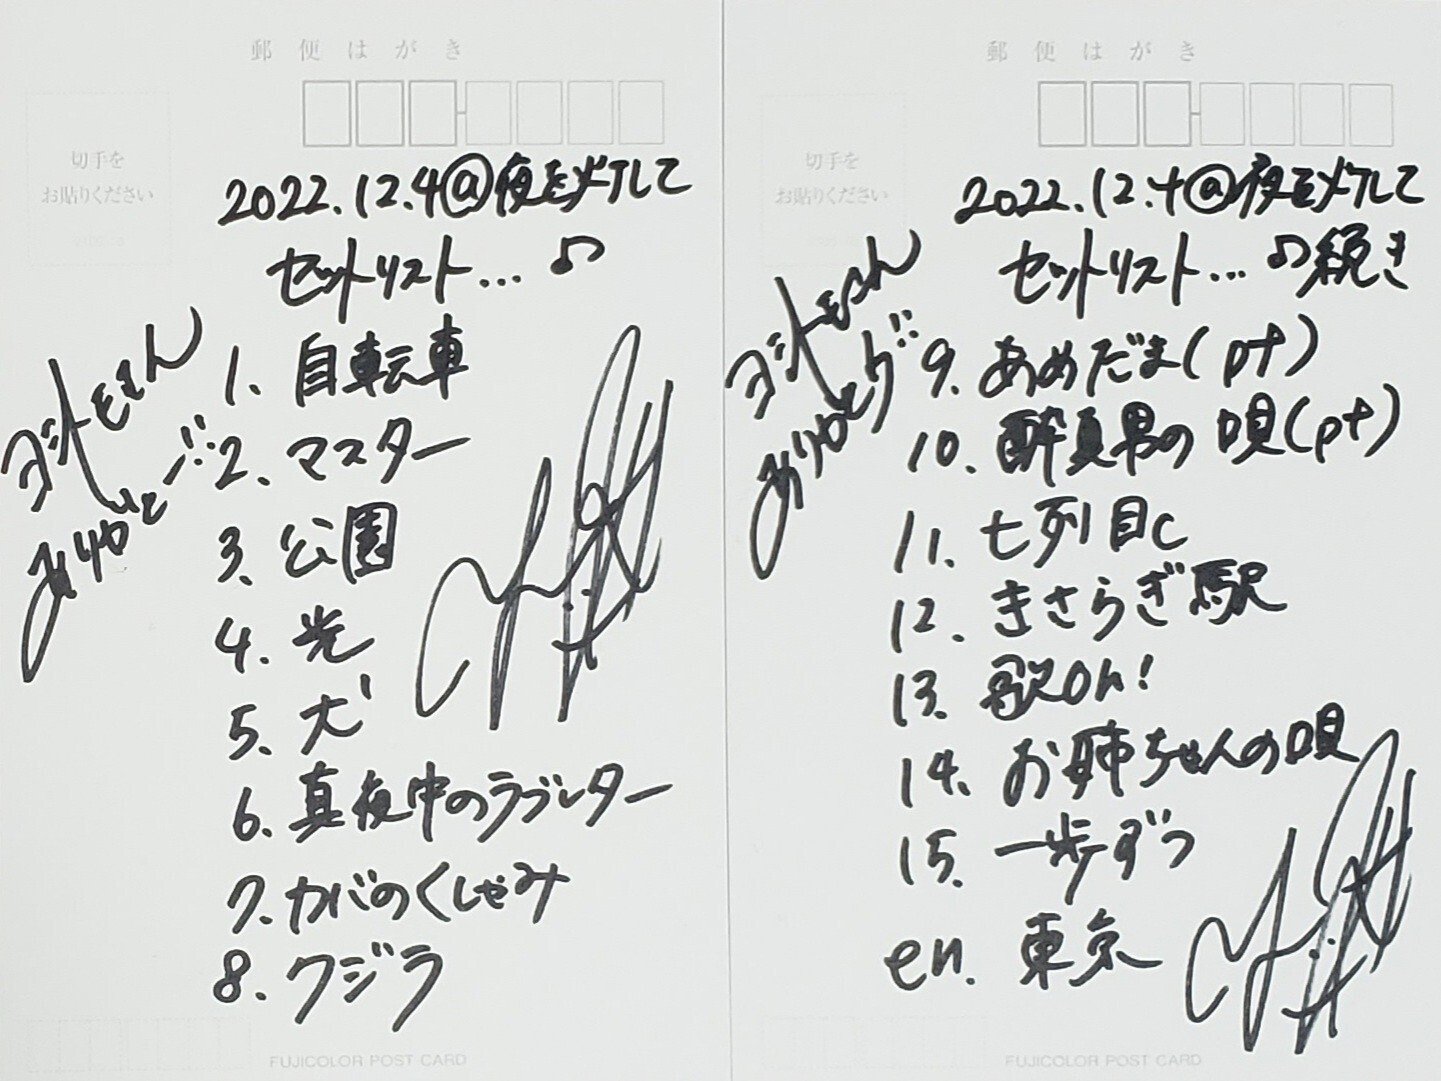 郵便はがき
切手を
お貼りください
2022.12.4@夜を
セットリスト...♪
1. 自転車
2. マスター
3. 公園
4. 光
5. 犬
6. 真夜中のラブレター
7. カバのくしゃみ
8. クジラ
FUJICOLOR POST CARD
郵便はがき
切手を
お貼りください
2022.12.4@夜を
セットリスト...♪続き
9. あめだま(pt)
10. 酔真男の唄(pt)
11. 七列目C
12. きさらぎ駅
13. 歌Oh!
14. お姉ちゃんの唄
15. 一歩ずつ
en. 東京
FUJICOLOR POST CARD